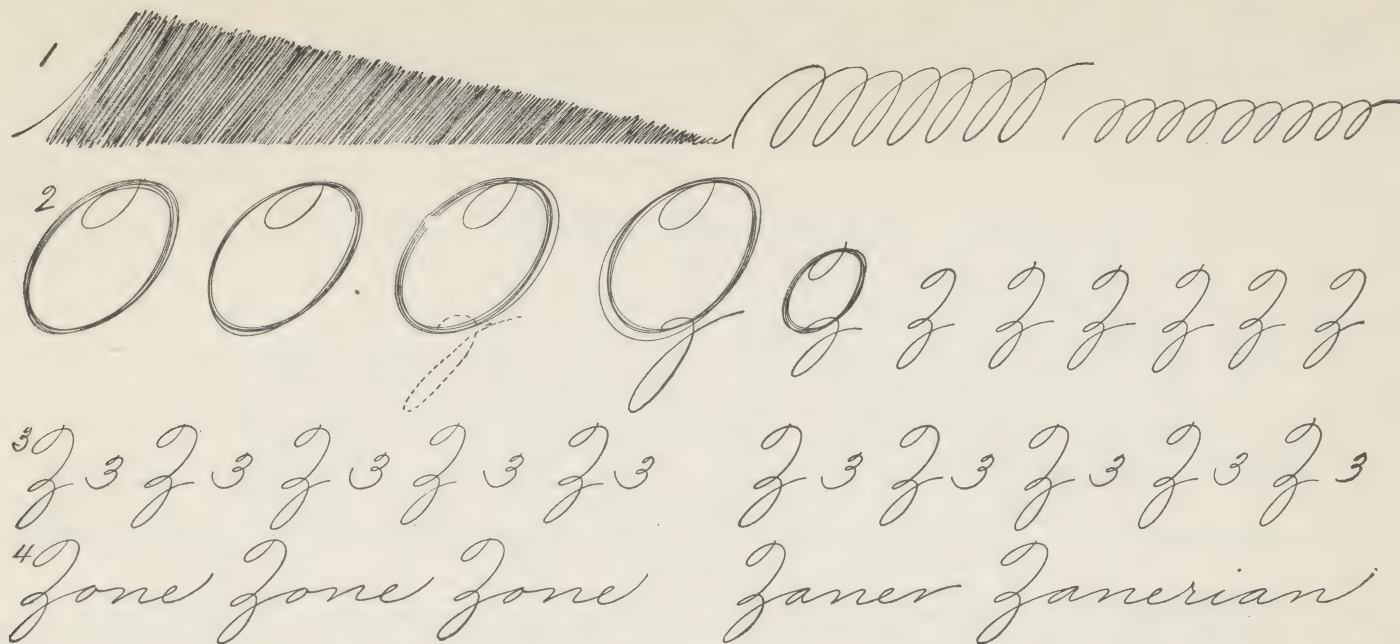 1
2 Z Z Z Z Z Z
3 Z 3 Z 3 Z 3 Z 3 Z 3 Z 3 Z 3 Z 3 Z 3 Z 3
4 Zone Zone Zone Zaner Zanerian